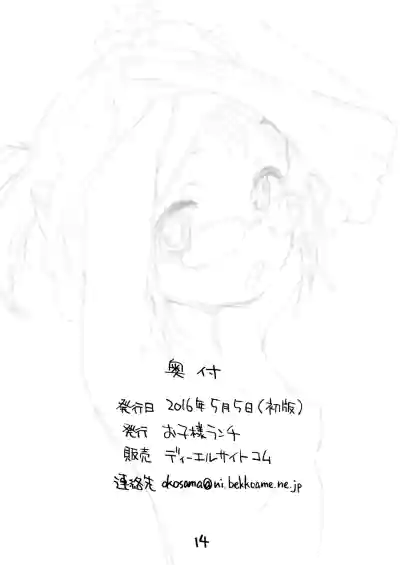 奥付
発行日 2016年5月5日(初版)
発行 お子様ランチ
販売 ディーエルサイトコム
連絡先 okosama@ni.bekkoame.ne.jp
14